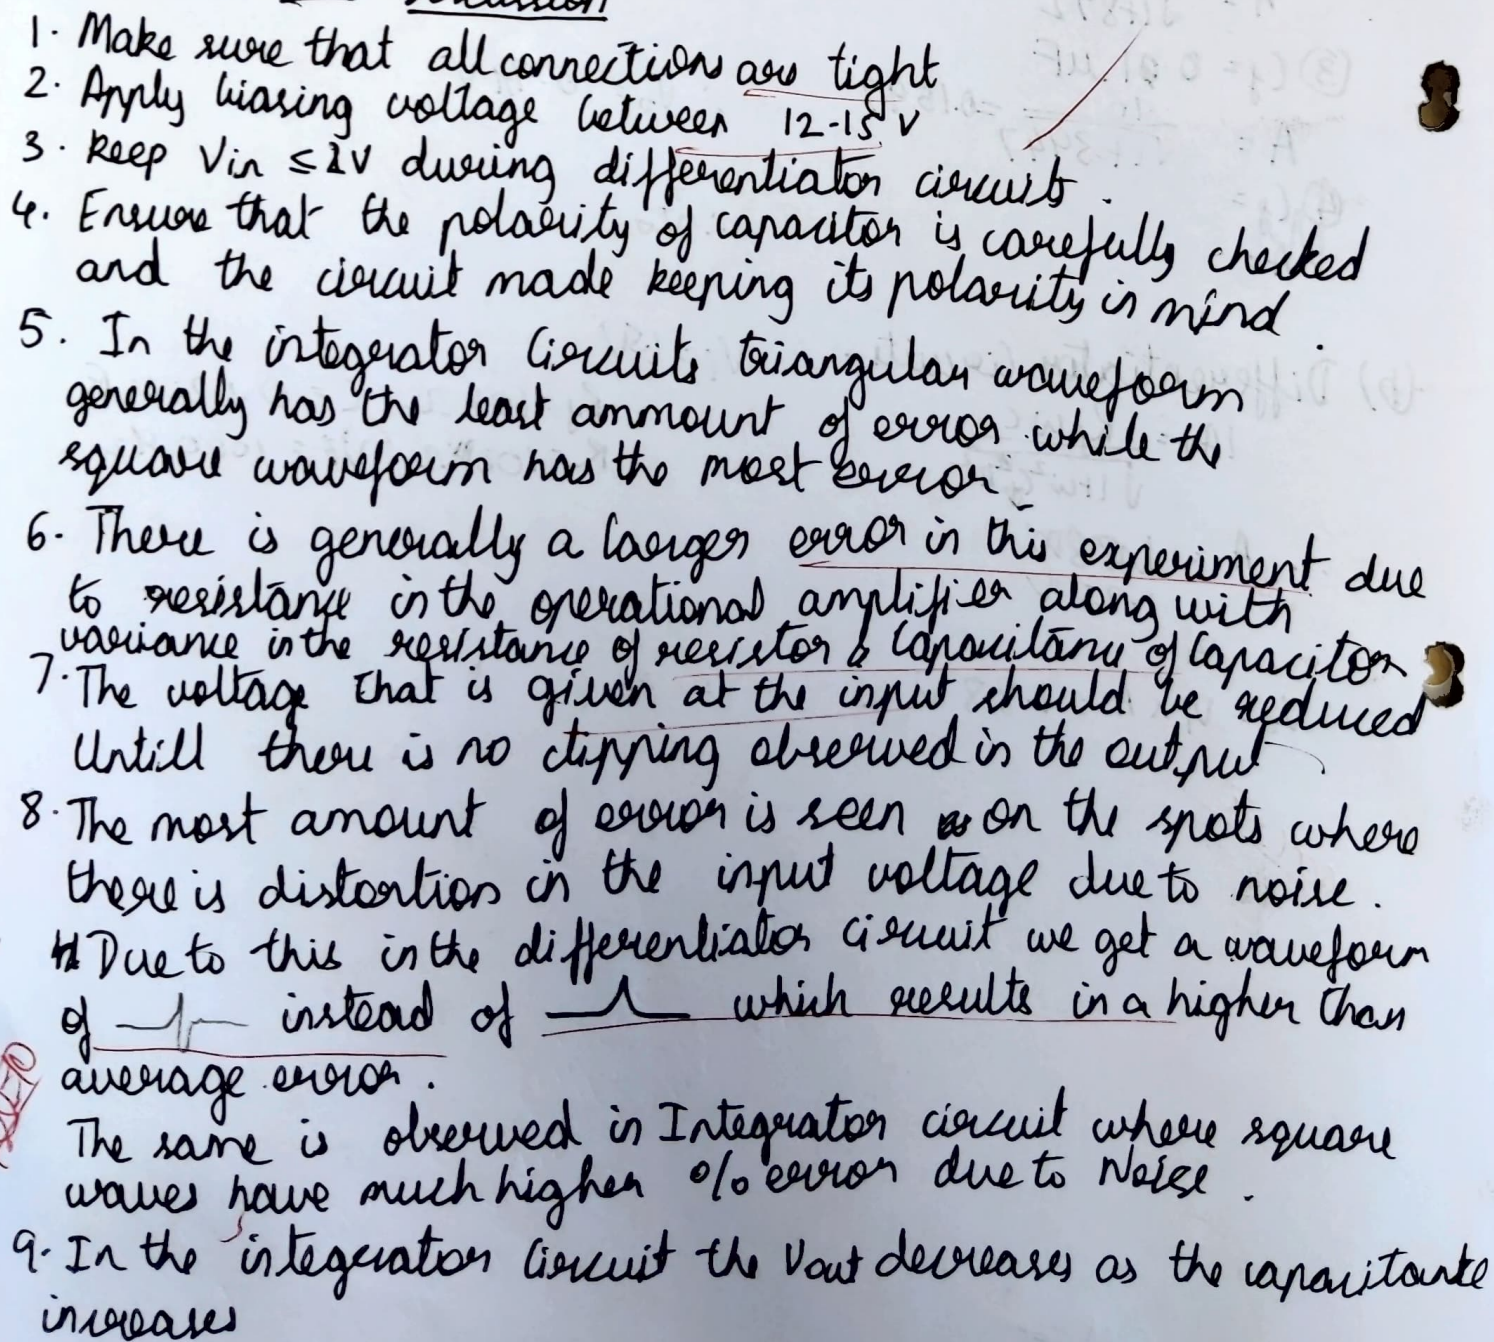 1. Make sure that all connections are tight
2. Apply biasing voltage between 12-15 V
3. Keep Vin ≤ 1V during differentiator circuits.
4. Ensure that the polarity of capacitor is carefully checked
and the circuit made keeping its polarity in mind.
5. In the integrator Circuits triangular waveform
generally has the least ammount of error while the
square waveform has the most error.
6. There is generally a larger error in this experiment due
to resistance in the operational amplifier along with
variance in the resistance of resistor & Capacitance of Capacitor
7. The voltage that is given at the input should be reduced
Untill there is no clipping observed in the output
8. The most amount of error is seen on the spots where
there is distortion in the input voltage due to noise.
Due to this in the differentiator circuit we get a waveform
of instead of which results in a higher than
average error.
The same is observed in Integrator circuit where square
waves have much higher % error due to Noise.
9. In the integrator Circuit the Vout decreases as the capacitance
increases